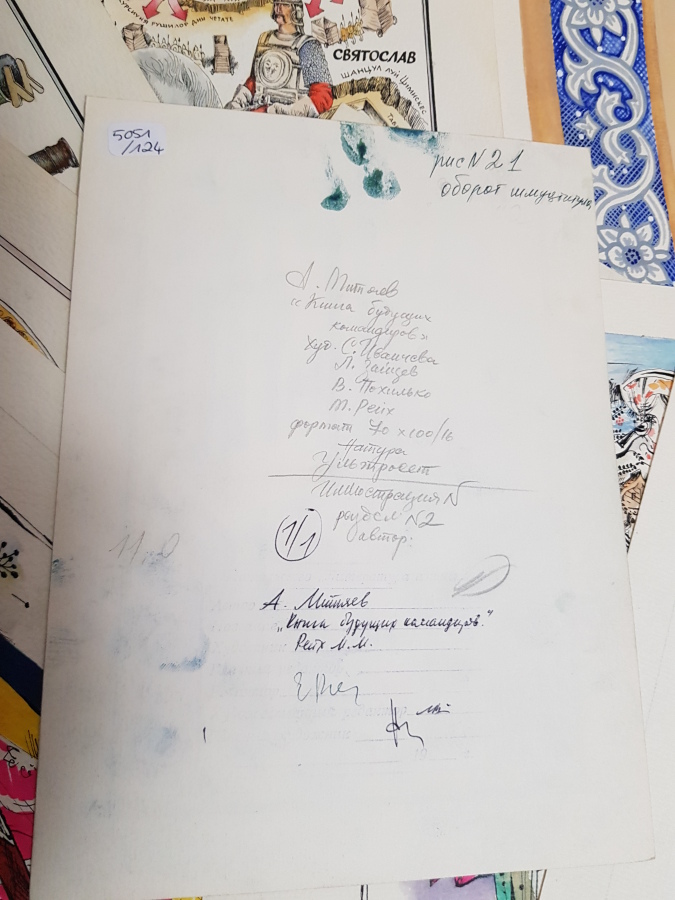 СВЯТОСЛАВ
5051
/124
рис N 21
оборот шмуцтитула
А. Митяев
«Книга будущих
командиров»
Худ. С. Иванчева
Л. Зайцев
В. Похилько
М. Рейх
формат 70 х 100/16
Натура
Ультросет
Иллюстрация N
раздел N2
1/1
автор:
11.0
А. Митяев
„Книга будущих командиров."
Рейх М.М.